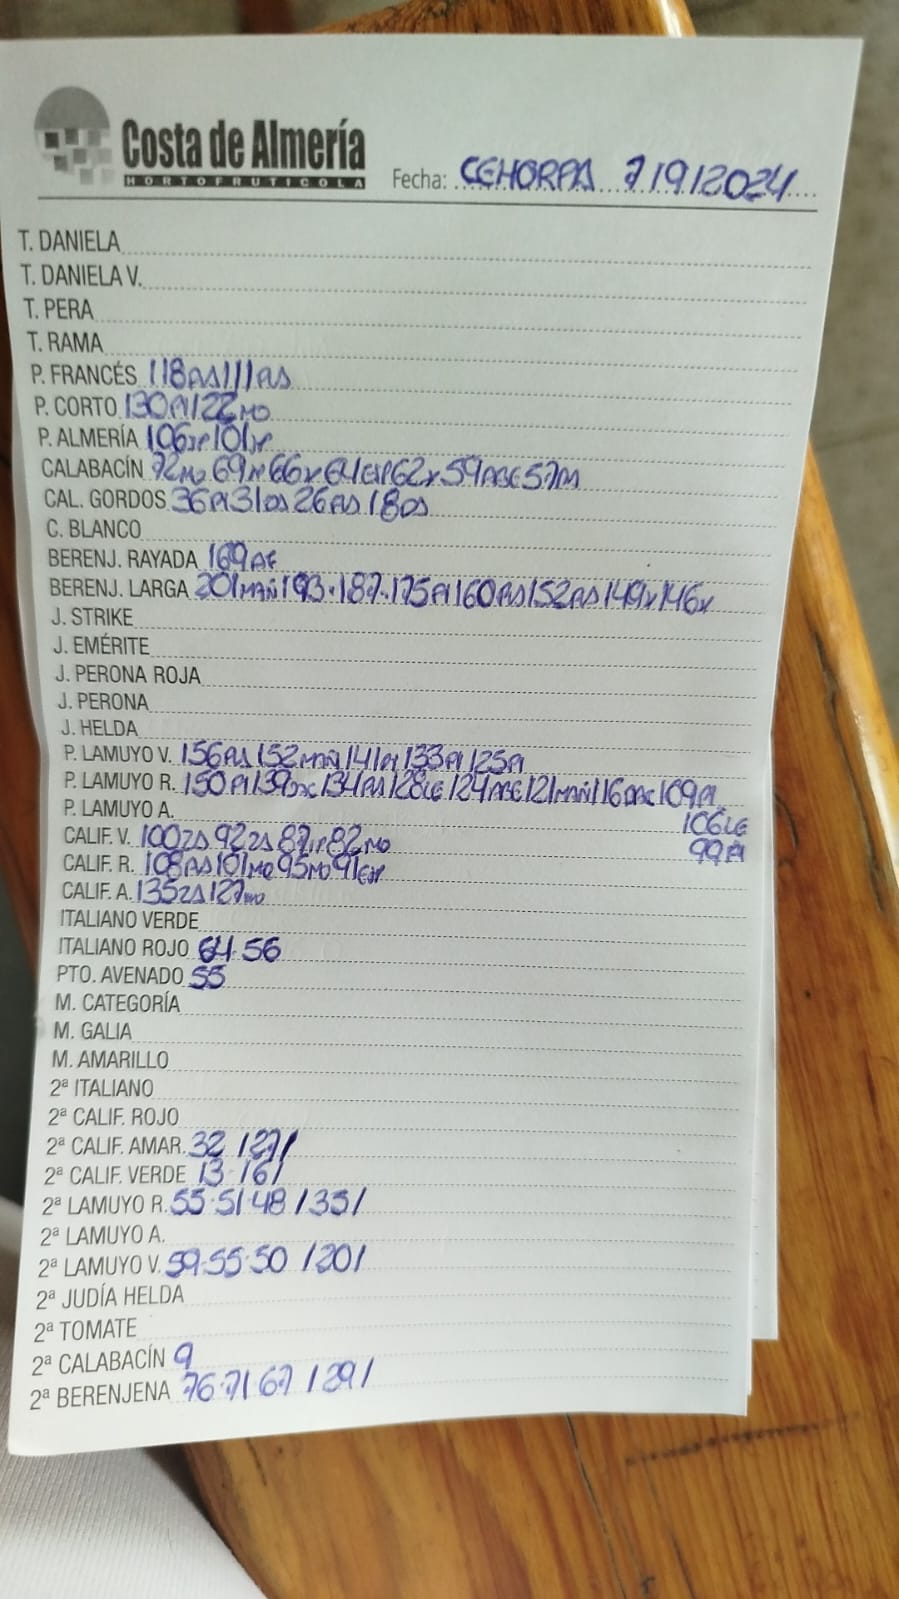 Costa de Almería
HORTOFRUTICOLA
Fecha: CEHORPA 7/9/2024
T. DANELA
T. DANIELA V.
T. PERA
T. RAMA
P. FRANCÉS 118AS 111AS
P. CORTO 130PI 122MO
P. ALMERÍA 106 101
CALABACÍN 72MO 69M 66x 64EJP 62x 59ABE 57M
CAL. GORDOS 36PI 31DS 26AS 18DS
C. BLANCO
BERENJ. RAYADA 169AF
BERENJ. LARGA 201MAÑ 193·187·175PI 160AS 152AS 149x 146x
J. STRIKE
J. EMÉRITE
J. PERONA ROJA
J. PERONA
J. HELDA
P. LAMUYO V. 156AS 152MAÑ 141PI 133PI 125PI
P. LAMUYO R. 150PI 139 134AS 128LE 124ABE 121MAÑ 116 109PI
P. LAMUYO A. 106LE
99PI
CALIF. V. 100ZA 92ZA 87 82MO
CALIF. R. 108AS 101MO 95MO 91EJP
CALIF. A. 135ZA 127MO
ITALIANO VERDE
ITALIANO ROJO 64·56
PTO. AVENADO 55
M. CATEGORÍA
M. GALIA
M. AMARILLO
2ª ITALIANO
2ª CALIF. ROJO
2ª CALIF. AMAR. 32 /27/
2ª CALIF. VERDE 13·16/
2ª LAMUYO R. 55·51·48 /35/
2ª LAMUYO A.
2ª LAMUYO V. 59·55·50 /20/
2ª JUDÍA HELDA
2ª TOMATE
2ª CALABACÍN 9
2ª BERENJENA 76·71·67 /29/